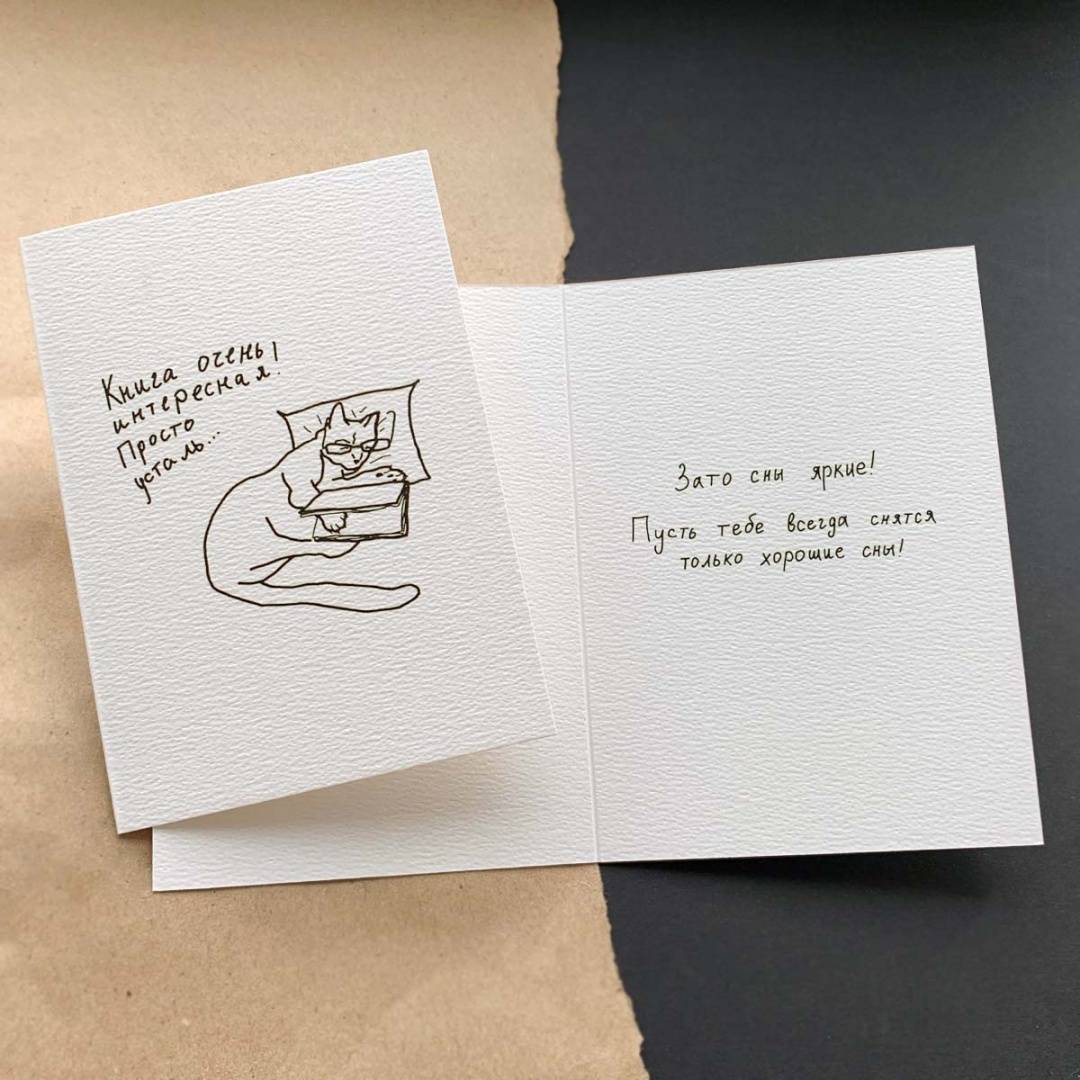 Книга очень
интересная!
Просто
усталь...
Зато сны яркие!
Пусть тебе всегда снятся
только хорошие сны!